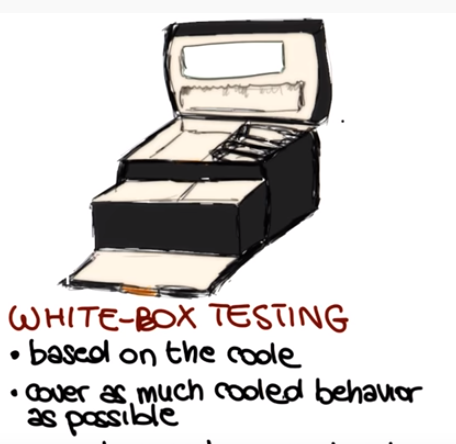 WHITE-BOX TESTING
• based on the code
• cover as much coded behavior
as possible